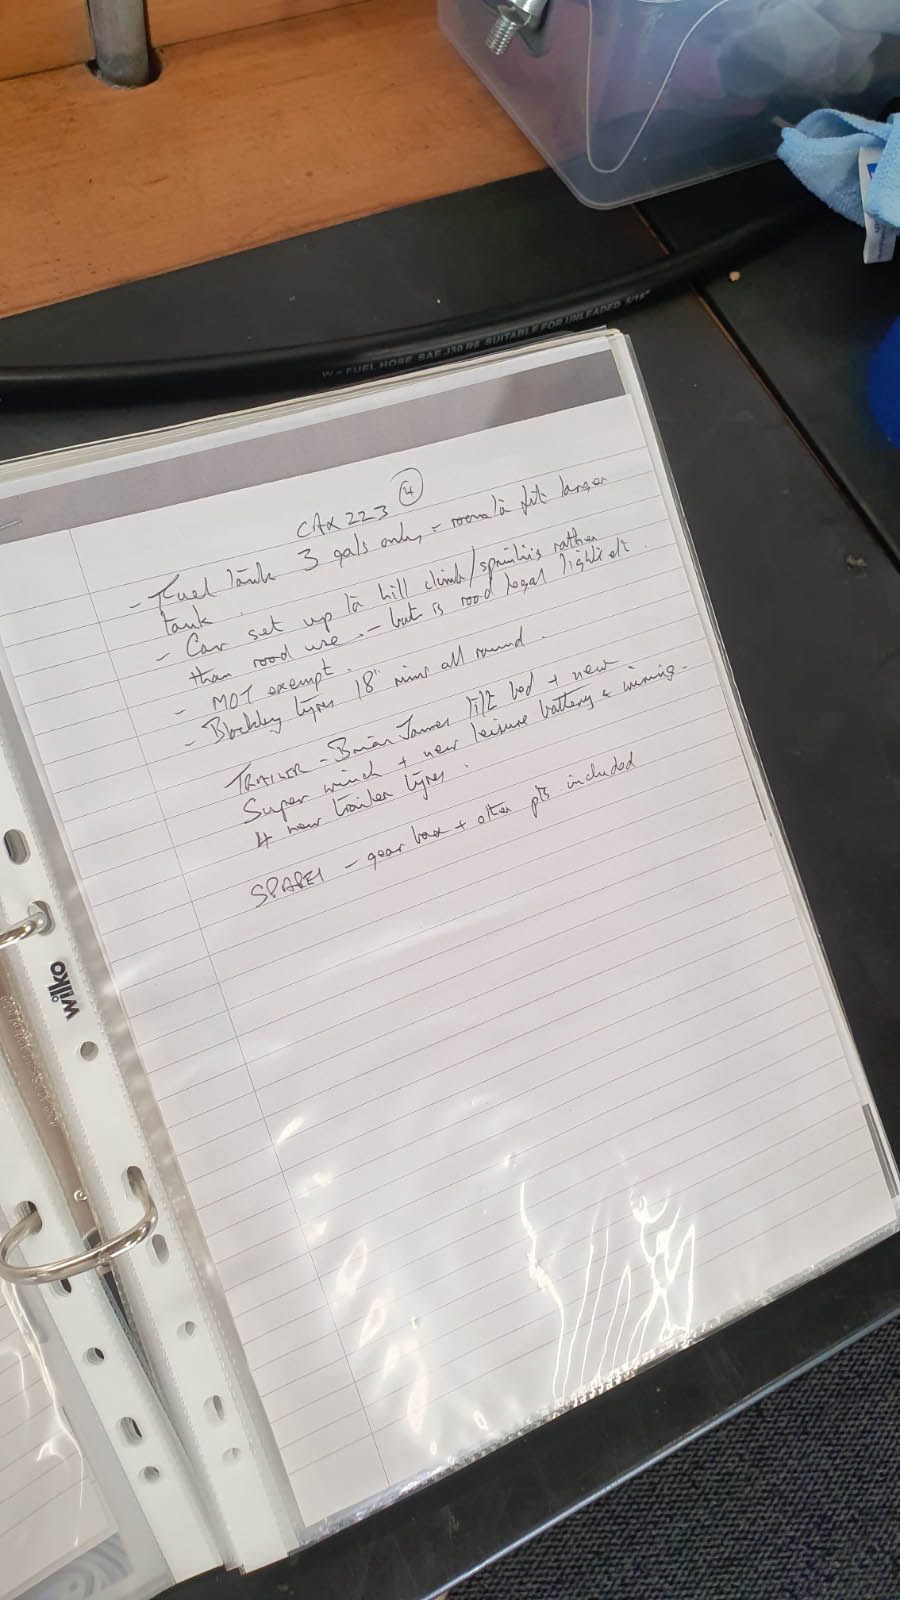 W - FUEL HOSE SAE J30 R6 SUITABLE FOR UNLEADED 5/16"
CAX 223 4
- Fuel tank 3 gals only, - room to fit larger
tank.
- Car set up to hill climb/sprints rather
than road use. - but is road legal
- MOT exempt.
- Blockley tyres 18" rims all round.
TRAILER - Brian James tilt bed + new
Super winch + new leisure battery & wiring.
4 new trailer tyres.
SPARES - gear box + other pts included
wilko